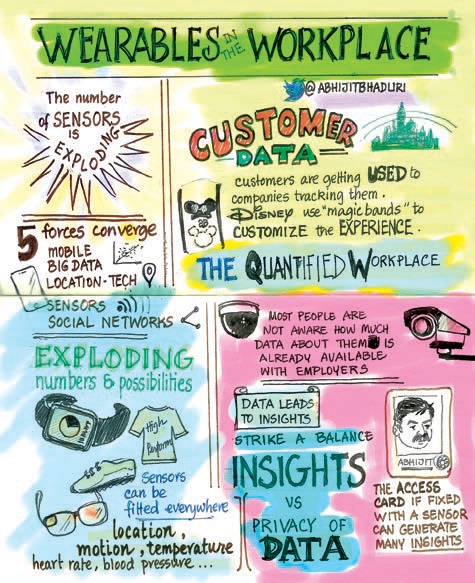 WEARABLES IN THE WORKPLACE
The number
of SENSORS
IS
EXPLODING
@ABHIJITBHADURI
CUSTOMER
DATA
customers are getting USED to
companies tracking them.
DISNEY use "magic bands" to
CUSTOMIZE the EXPERIENCE.
THE QUANTIFIED WORKPLACE
5 forces converge
MOBILE
BIG DATA
LOCATION-TECH
SENSORS
SOCIAL NETWORKS
EXPLODING
numbers & possibilities
High
Perform
Sensors
can be
fitted everywhere
location,
motion, temperature
heart rate, blood pressure...
MOST PEOPLE ARE
NOT AWARE HOW MUCH
DATA ABOUT THEM IS
ALREADY AVAILABLE
WITH EMPLOYERS
DATA LEADS
TO INSIGHTS
STRIKE A BALANCE
INSIGHTS
VS
PRIVACY OF
DATA
ABHIJIT
THE ACCESS
CARD IF FIXED
WITH A SENSOR
CAN GENERATE
MANY INSIGHTS